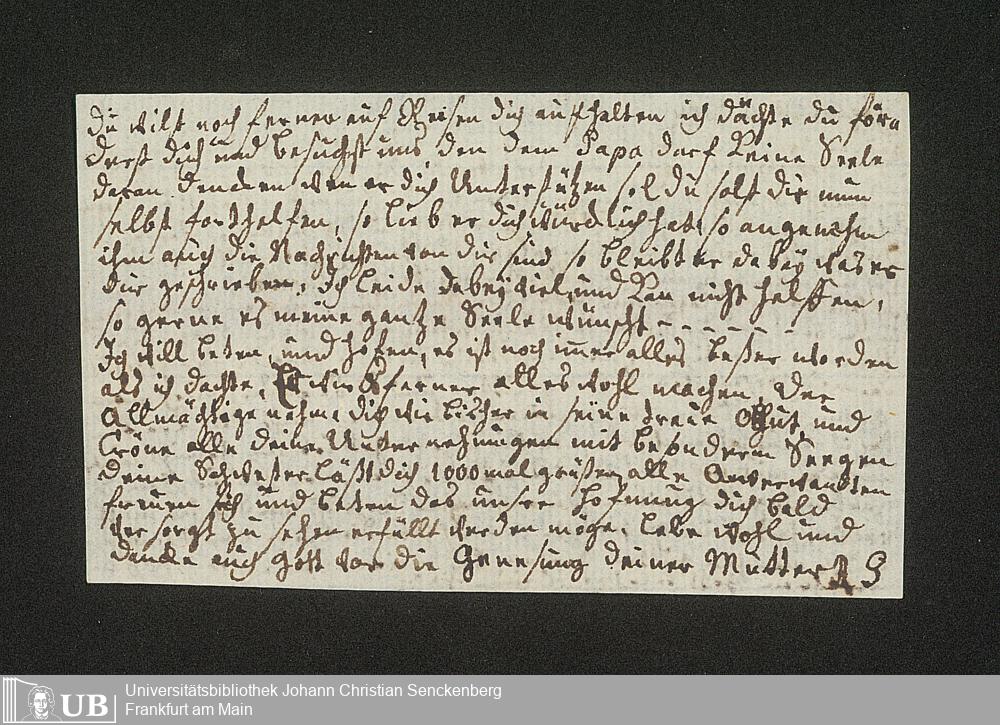 du wilst noch ferner auf Reisen dich aufhalten ich dächte du för
derst dich und besuchst uns, den dem Papa darf keine Seele
daran dencken wen er dich Unterstützen sol du solst dir nun
selbst forthelfen, so lieb er dich würcklich hat, so angenehm
ihm auch die Nachrichten von dir sind so bleibt er dabey was er
dir geschrieben, Ich leide dabey viel, und kan nicht helffen,
so gerne es meine gantze Seele wünscht ------
Ich will beten, und hofen, es ist noch immer alles beßer worden
als ich dachte, ferner alles wohl machen, Der
Allmächtige nehme dich wie bischer in seine treue Obhut und
Cröne alle deine Unternehmungen mit besonderm Seegen
deine Schwester läßt dich 1000 mal grüßen alle Anverwandten
freuen sich und beten das unsre Hofnung dich bald
versorgt zu sehen erfüllt werden möge. lebe wohl und
dancke auch gott vor die Genesung deiner Mutter
UB
Universitätsbibliothek Johann Christian Senckenberg
Frankfurt am Main